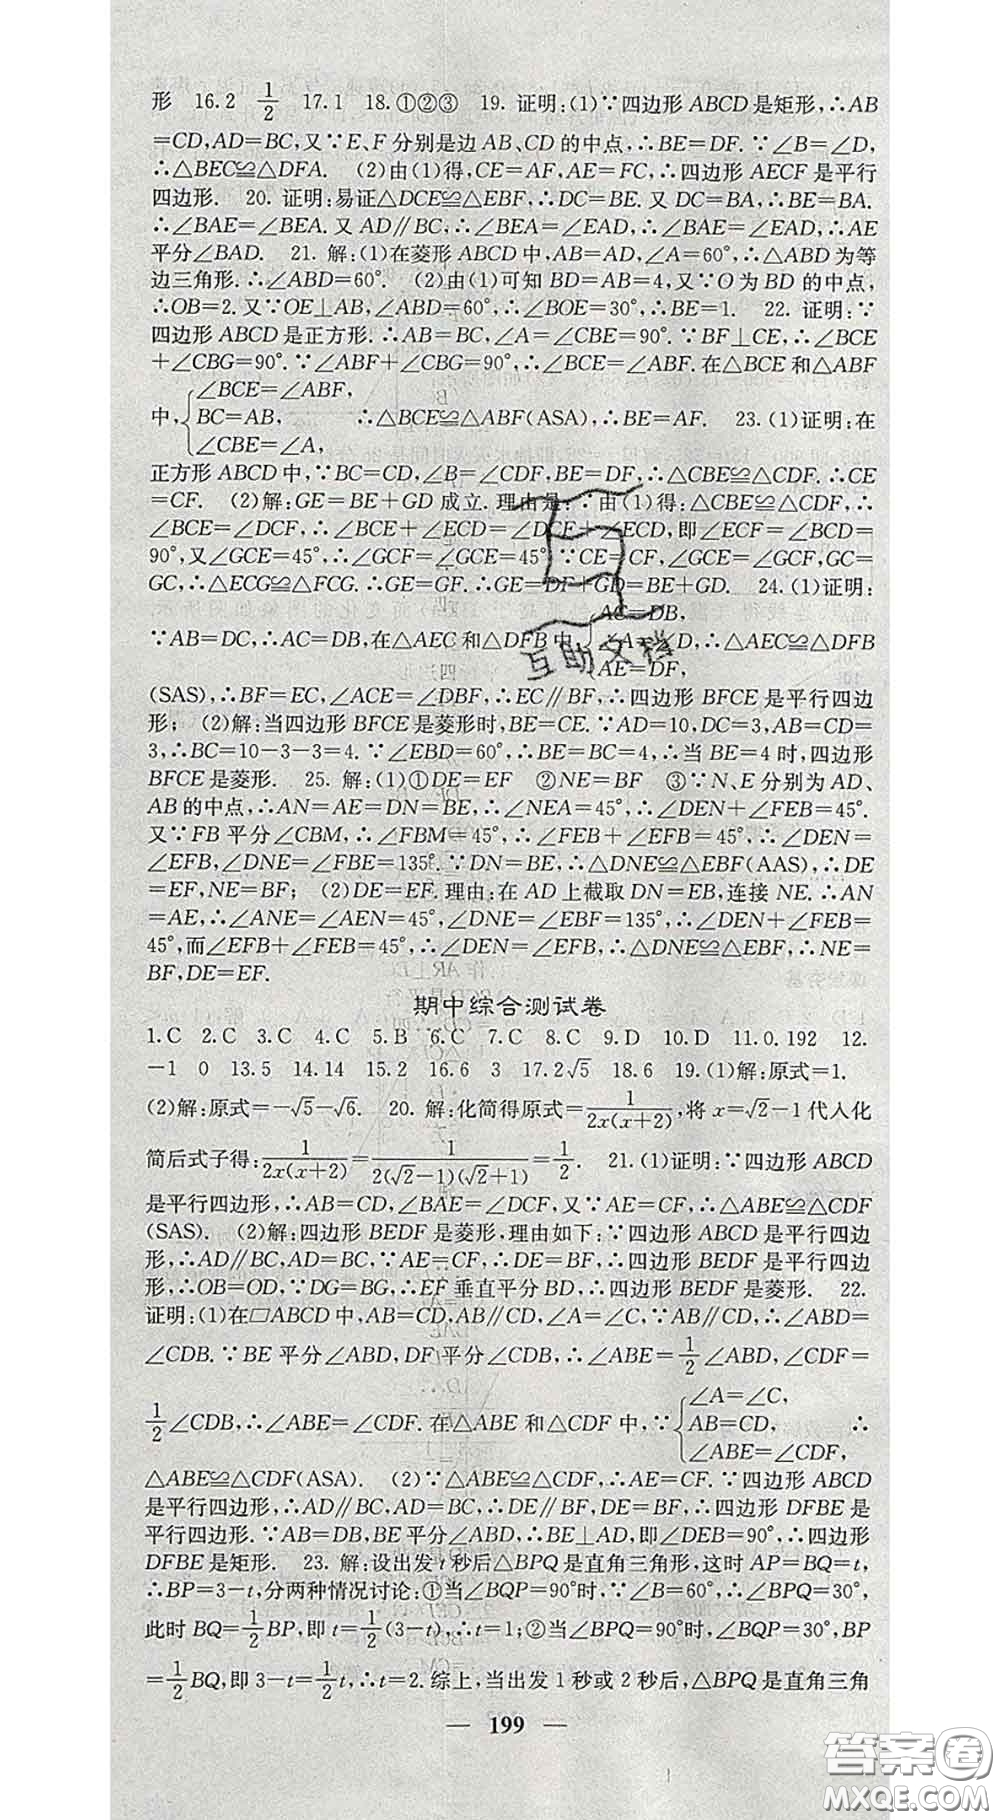 形　16.2　1/2　17.1　18.①②③　19. 证明:(1)∵四边形 ABCD 是矩形,∴AB
=CD,AD=BC,又∵E、F 分别是边 AB、CD 的中点,∴BE=DF.∵∠B=∠D,
∴△BEC≌△DFA.　(2)由(1)得,CE=AF,AE=FC,∴四边形 AECF 是平行
四边形.　20. 证明:易证△DCE≌△EBF,∴DC=BE.又 DC=BA,∴BE=BA.
∴∠BAE=∠BEA.又 AD∥BC,∴∠BEA=∠EAD,∴∠BAE=∠EAD,∴AE
平分∠BAD.　21. 解:(1)在菱形 ABCD 中,AB=AD,∠A=60°,∴△ABD 为等
边三角形.∴∠ABD=60°.　(2)由(1)可知 BD=AB=4,又∵O 为 BD 的中点,
∴OB=2.又∵OE⊥AB,∠ABD=60°,∴∠BOE=30°,∴BE=1.　22. 证明:∵
四边形 ABCD 是正方形.∴AB=BC,∠A=∠CBE=90°.∵BF⊥CE,∴∠BCE
+∠CBG=90°.∵∠ABF+∠CBG=90°,∴∠BCE=∠ABF.在△BCE 和△ABF
∠BCE=∠ABF,
中,{BC=AB,　∴△BCE≌△ABF(ASA),∴BE=AF.　23.(1)证明:在
∠CBE=∠A,
正方形 ABCD 中,∵BC=CD,∠B=∠CDF,BE=DF,∴△CBE≌△CDF.∴CE
=CF.　(2)解:GE=BE+GD 成立.理由是:∵由(1)得:△CBE≌△CDF,∴
∠BCE=∠DCF,∴∠BCE+∠ECD=∠DCE+∠ECD,即∠ECF=∠BCD=
90°,又∠GCE=45°,∴∠GCF=∠GCE=45°.∵CE=CF,∠GCE=∠GCF,GC=
GC,∴△ECG≌△FCG.∴GE=GF.∴GE=DF+GD=BE+GD.　24.(1)证明:
AC=DB,
∵AB=DC,∴AC=DB,在△AEC 和△DFB 中{∠A=∠D,∴△AEC≌△DFB
AE=DF,
(SAS),∴BF=EC,∠ACE=∠DBF,∴EC∥BF,∴四边形 BFCE 是平行四边
形;　(2)解:当四边形 BFCE 是菱形时,BE=CE.∵AD=10,DC=3,AB=CD=
3,∴BC=10-3-3=4.∵∠EBD=60°,∴BE=BC=4,∴当 BE=4 时,四边形
BFCE 是菱形.　25. 解:(1)①DE=EF　②NE=BF　③∵N、E 分别为 AD、
AB 的中点,∴AN=AE=DN=BE,∴∠NEA=45°,∴∠DEN+∠FEB=45°.
又∵FB 平分∠CBM,∴∠FBM=45°,∴∠FEB+∠EFB=45°,∴∠DEN=
∠EFB,∠DNE=∠FBE=135°.∵DN=BE,∴△DNE≌△EBF(AAS),∴DE
=EF,NE=BF;　(2)DE=EF.理由:在 AD 上截取 DN=EB,连接 NE.∴AN
=AE,∴∠ANE=∠AEN=45°,∠DNE=∠EBF=135°,∴∠DEN+∠FEB=
45°,而∠EFB+∠FEB=45°,∴∠DEN=∠EFB,∴△DNE≌△EBF,∴NE=
BF,DE=EF.
期中综合测试卷
1.C　2.C　3.C　4.C　5.B　6.C　7.C　8.C　9.D　10.D　11.0.192　12.
-1　0　13.5　14.14　15.2　16.6　3　17.2√5　18.6　19.(1)解:原式=1.
(2)解:原式=-√5-√6.　20. 解:化简得原式=1/(2x(x+2)),将 x=√2-1 代入化
简后式子得:1/(2x(x+2))=1/(2(√2-1)(√2+1))=1/2.　21.(1)证明:∵四边形 ABCD
是平行四边形,∴AB=CD,∠BAE=∠DCF,又∵AE=CF,∴△ABE≌△CDF
(SAS).　(2)解:四边形 BEDF 是菱形,理由如下:∵四边形 ABCD 是平行四边
形,∴AD∥BC,AD=BC,∵AE=CF,∴DE=BF,∴四边形 BEDF 是平行四边
形,∴OB=OD,∵DG=BG,∴EF 垂直平分 BD,∴四边形 BEDF 是菱形.　22.
证明:(1)在□ABCD 中,AB=CD,AB∥CD,∠A=∠C,∵AB∥CD,∴∠ABD=
∠CDB.∵BE 平分∠ABD,DF 平分∠CDB,∴∠ABE=1/2∠ABD,∠CDF=
1/2∠CDB,∴∠ABE=∠CDF.在△ABE 和△CDF 中,∵{∠A=∠C,
AB=CD,　∴
∠ABE=∠CDF,
△ABE≌△CDF(ASA).　(2)∵△ABE≌△CDF,∴AE=CF.∵四边形 ABCD
是平行四边形,∴AD∥BC,AD=BC,∴DE∥BF,DE=BF,∴四边形 DFBE 是
平行四边形.∵AB=DB,BE 平分∠ABD,∴BE⊥AD,即∠DEB=90°,∴四边形
DFBE 是矩形.　23. 解:设出发 t 秒后△BPQ 是直角三角形,这时 AP=BQ=t,
∴BP=3-t,分两种情况讨论:①当∠BQP=90°时,∵∠B=60°,∴∠BPQ=30°,
此时 BQ=1/2BP,即 t=1/2(3-t),∴t=1;②当∠BPQ=90°时,∠BQP=30°,BP
=1/2BQ,即 3-t=1/2t,∴t=2.综上,当出发 1 秒或 2 秒后,△BPQ 是直角三角
— 199 —
互助文档
答案圈
MXQE.COM